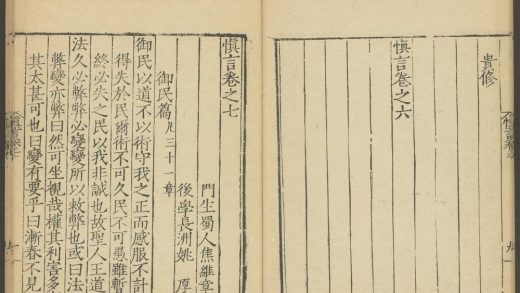 貴修
慎言卷之六
慎言卷之七
門生蜀人焦維章
後學長洲姚厚
御民篇凡三十一章
御民以道不以術守我之正而感服不計
得失於民爾術不可久民不可愚雖暫
終必失之民以我非誠也故聖人王道
法久必弊弊必變變所以救弊也或曰法
弊變亦弊曰然可坐視哉權其利害多
其太甚可也曰變有要乎曰漸春不見